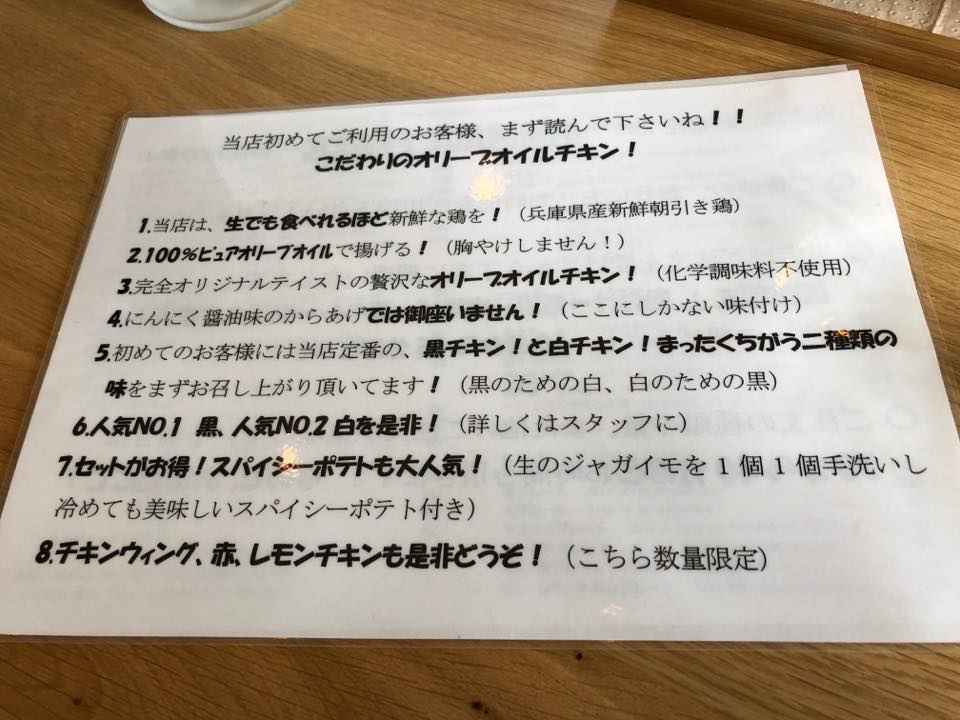 当店初めてご利用のお客様、まず読んで下さいね！！
こだわりのオリーブオイルチキン！
1.当店は、生でも食べれるほど新鮮な鶏を！（兵庫県産新鮮朝引き鶏）
2.100％ピュアオリーブオイルで揚げる！（胸やけしません！）
3.完全オリジナルテイストの贅沢なオリーブオイルチキン！（化学調味料不使用）
4.にんにく醤油味のからあげでは御座いません！（ここにしかない味付け）
5.初めてのお客様には当店定番の、黒チキン！と白チキン！まったくちがう二種類の
味をまずお召し上がり頂いてます！（黒のための白、白のための黒）
6.人気NO.1 黒、人気NO.2 白を是非！（詳しくはスタッフに）
7.セットがお得！スパイシーポテトも大人気！（生のジャガイモを1個1個手洗いし
冷めても美味しいスパイシーポテト付き）
8.チキンウィング、赤、レモンチキンも是非どうぞ！（こちら数量限定）